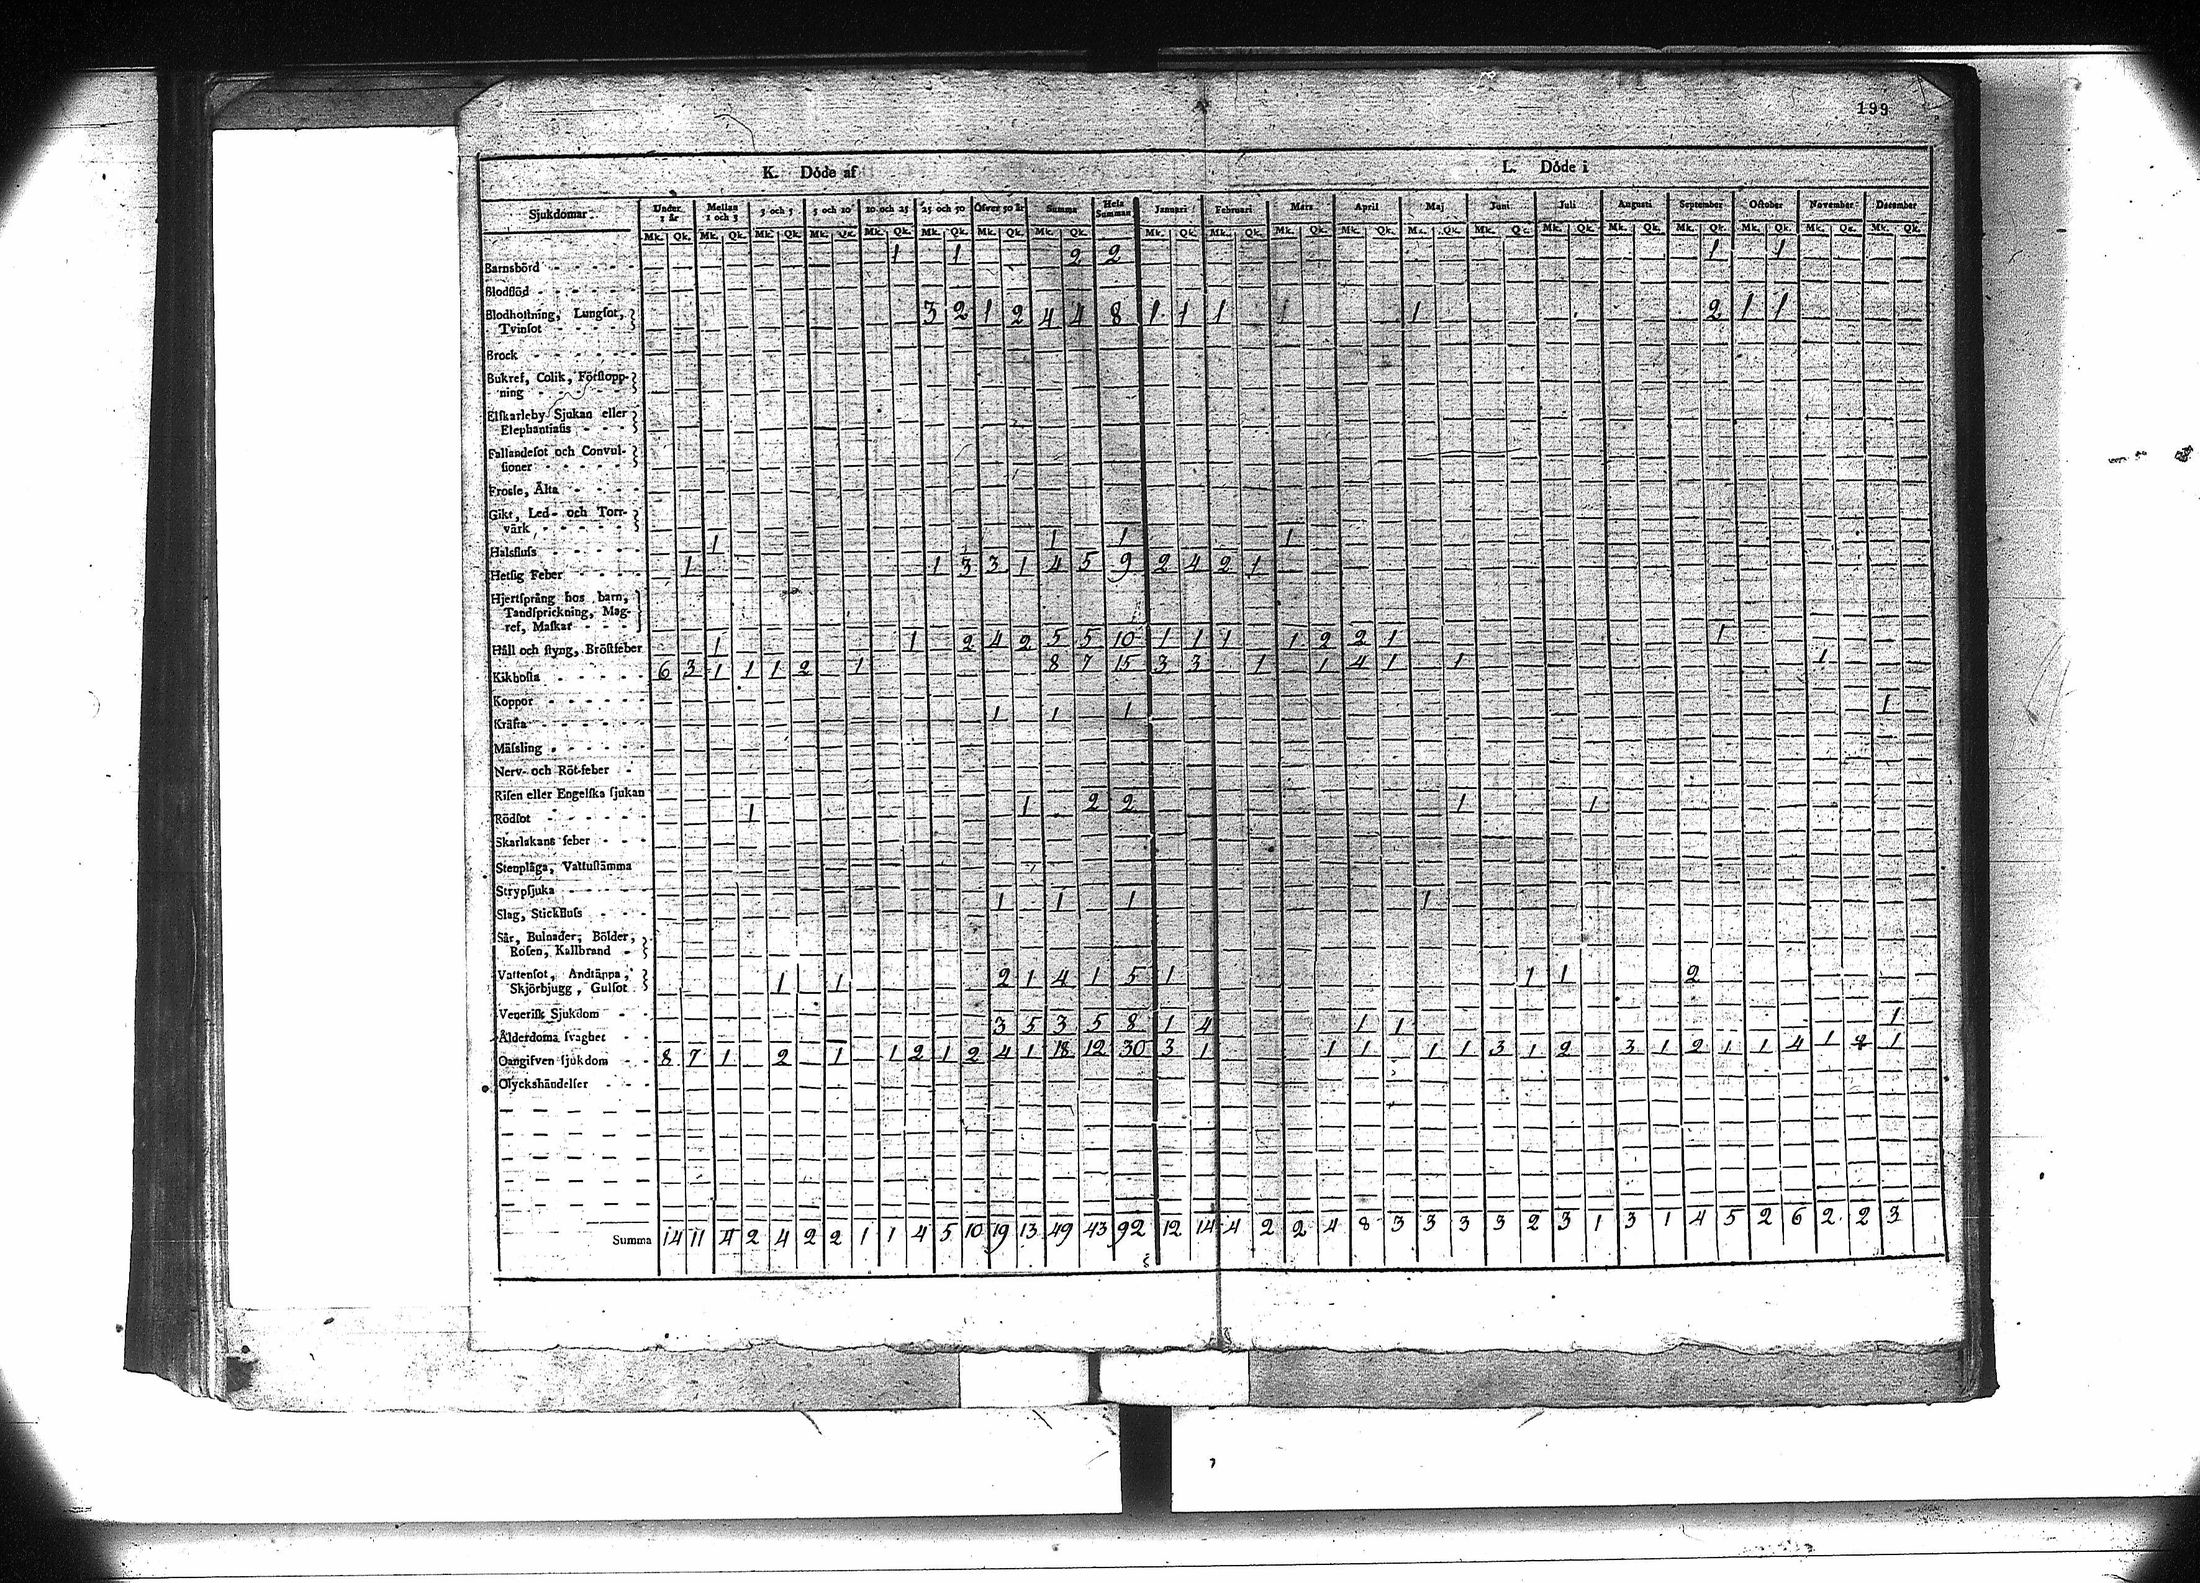 199
K. Döde af L. Döde i
Sjukdomar. Under 1 år Mellan 1 och 3 3 och 5 5 och 10 10 och 25 25 och 50 Öfver 50 år Summa Hela Summan Januari Februari Mars April Maj Juni Juli Augusti September October November December
Mk. Qk. Mk. Qk. Mk. Qk. Mk. Qk. Mk. Qk. Mk. Qk. Mk. Qk. Mk. Qk. Mk. Qk. Mk. Qk. Mk. Qk. Mk. Qk. Mk. Qk. Mk. Qk. Mk. Qk. Mk. Qk. Mk. Qk. Mk. Qk. Mk. Qk. Mk. Qk.
Barnsbörd 1 1 2 2 1 1
Blodflöd
Blodhoſtning, Lungſot,
Tvinſot 3 2 1 2 4 4 8 1 1 1 1 1 2 1 1
Brock
Bukref, Colik, Förſtopp-
ning
Elfkarleby Sjukan eller
Elephantiaſis
Fallandeſot och Convul-
ſioner
Froſſe, Älta
Gikt, Led- och Torr-
värk
Halsfluſs 1 1 1 1
Hetſig Feber 1 1 3 3 1 4 5 9 2 4 2 1
Hjertſprång hos barn,
Tandſprickning, Mag-
ref, Maſkar
Håll och ſtyng, Bröſtfeber 1 1 2 4 2 5 5 10 1 1 1 1 2 2 1 1
Kikhoſta 6 3 1 1 1 2 1 8 7 15 3 3 1 1 4 1 1 1
Koppor
Kräfta 1 1 1 1
Mäſsling
Nerv- och Röt-feber
Riſen eller Engelſka ſjukan
Rödſot 1 1 2 2 1 1
Skarlakans feber
Stenplåga, Vattuſtämma
Strypſjuka
Slag, Stickfluſs 1 1 1 1
Sår, Bulnader, Bölder,
Roſen, Kallbrand
Vattenſot, Andtäppa,
Skjörbjugg, Gulſot 1 1 2 1 4 1 5 1 1 1 2
Veneriſk Sjukdom
Ålderdoms ſvaghet 3 5 3 5 8 1 4 1 1 1
Oangifven ſjukdom 8 7 1 2 1 1 2 1 2 4 1 18 12 30 3 1 1 1 1 1 3 1 2 3 1 2 1 1 4 1 2 1
Olyckshändelſer
Summa 14 11 4 2 4 2 2 1 1 4 5 10 19 13 49 43 92 12 14 4 2 2 4 8 3 3 3 3 2 3 1 3 1 4 5 2 6 2 2 3